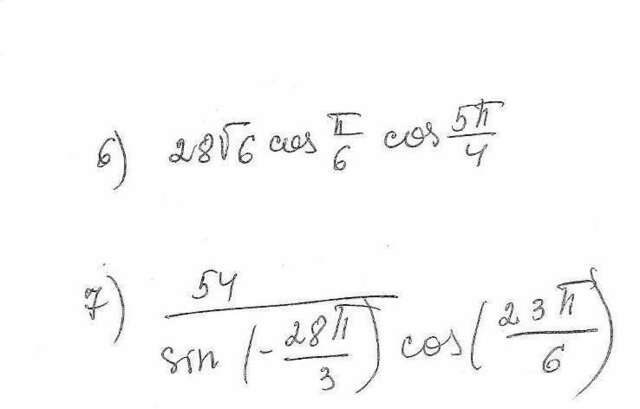 6) 28√6 cos π/6 cos 5π/4
7) 54 / sin (-28π/3) cos (23π/6)